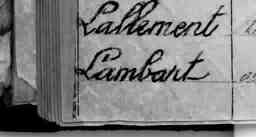 Lallement
Lambart